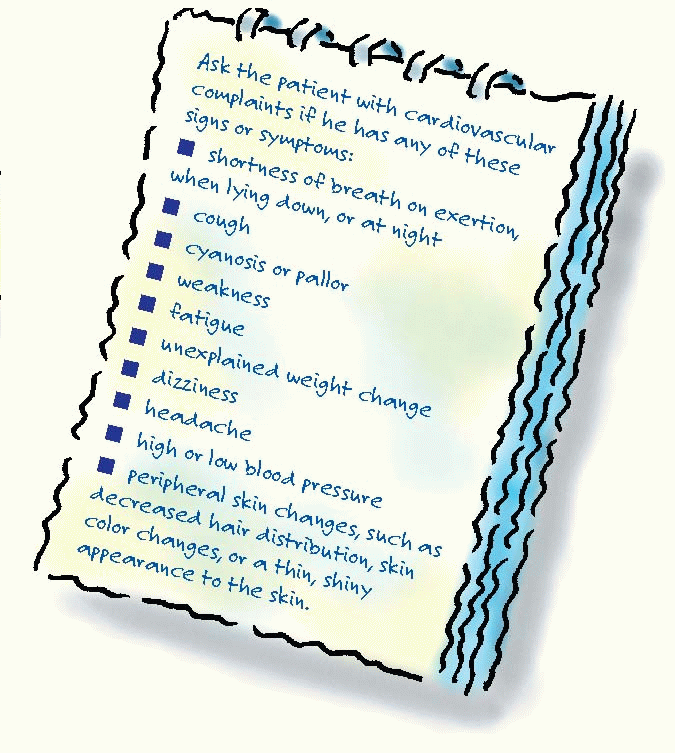 Ask the patient with cardiovascular
complaints if he has any of these
signs or symptoms:
■ shortness of breath on exertion,
when lying down, or at night
■ cough
■ cyanosis or pallor
■ weakness
■ fatigue
■ unexplained weight change
■ dizziness
■ headache
■ high or low blood pressure
■ peripheral skin changes, such as
decreased hair distribution, skin
color changes, or a thin, shiny
appearance to the skin.